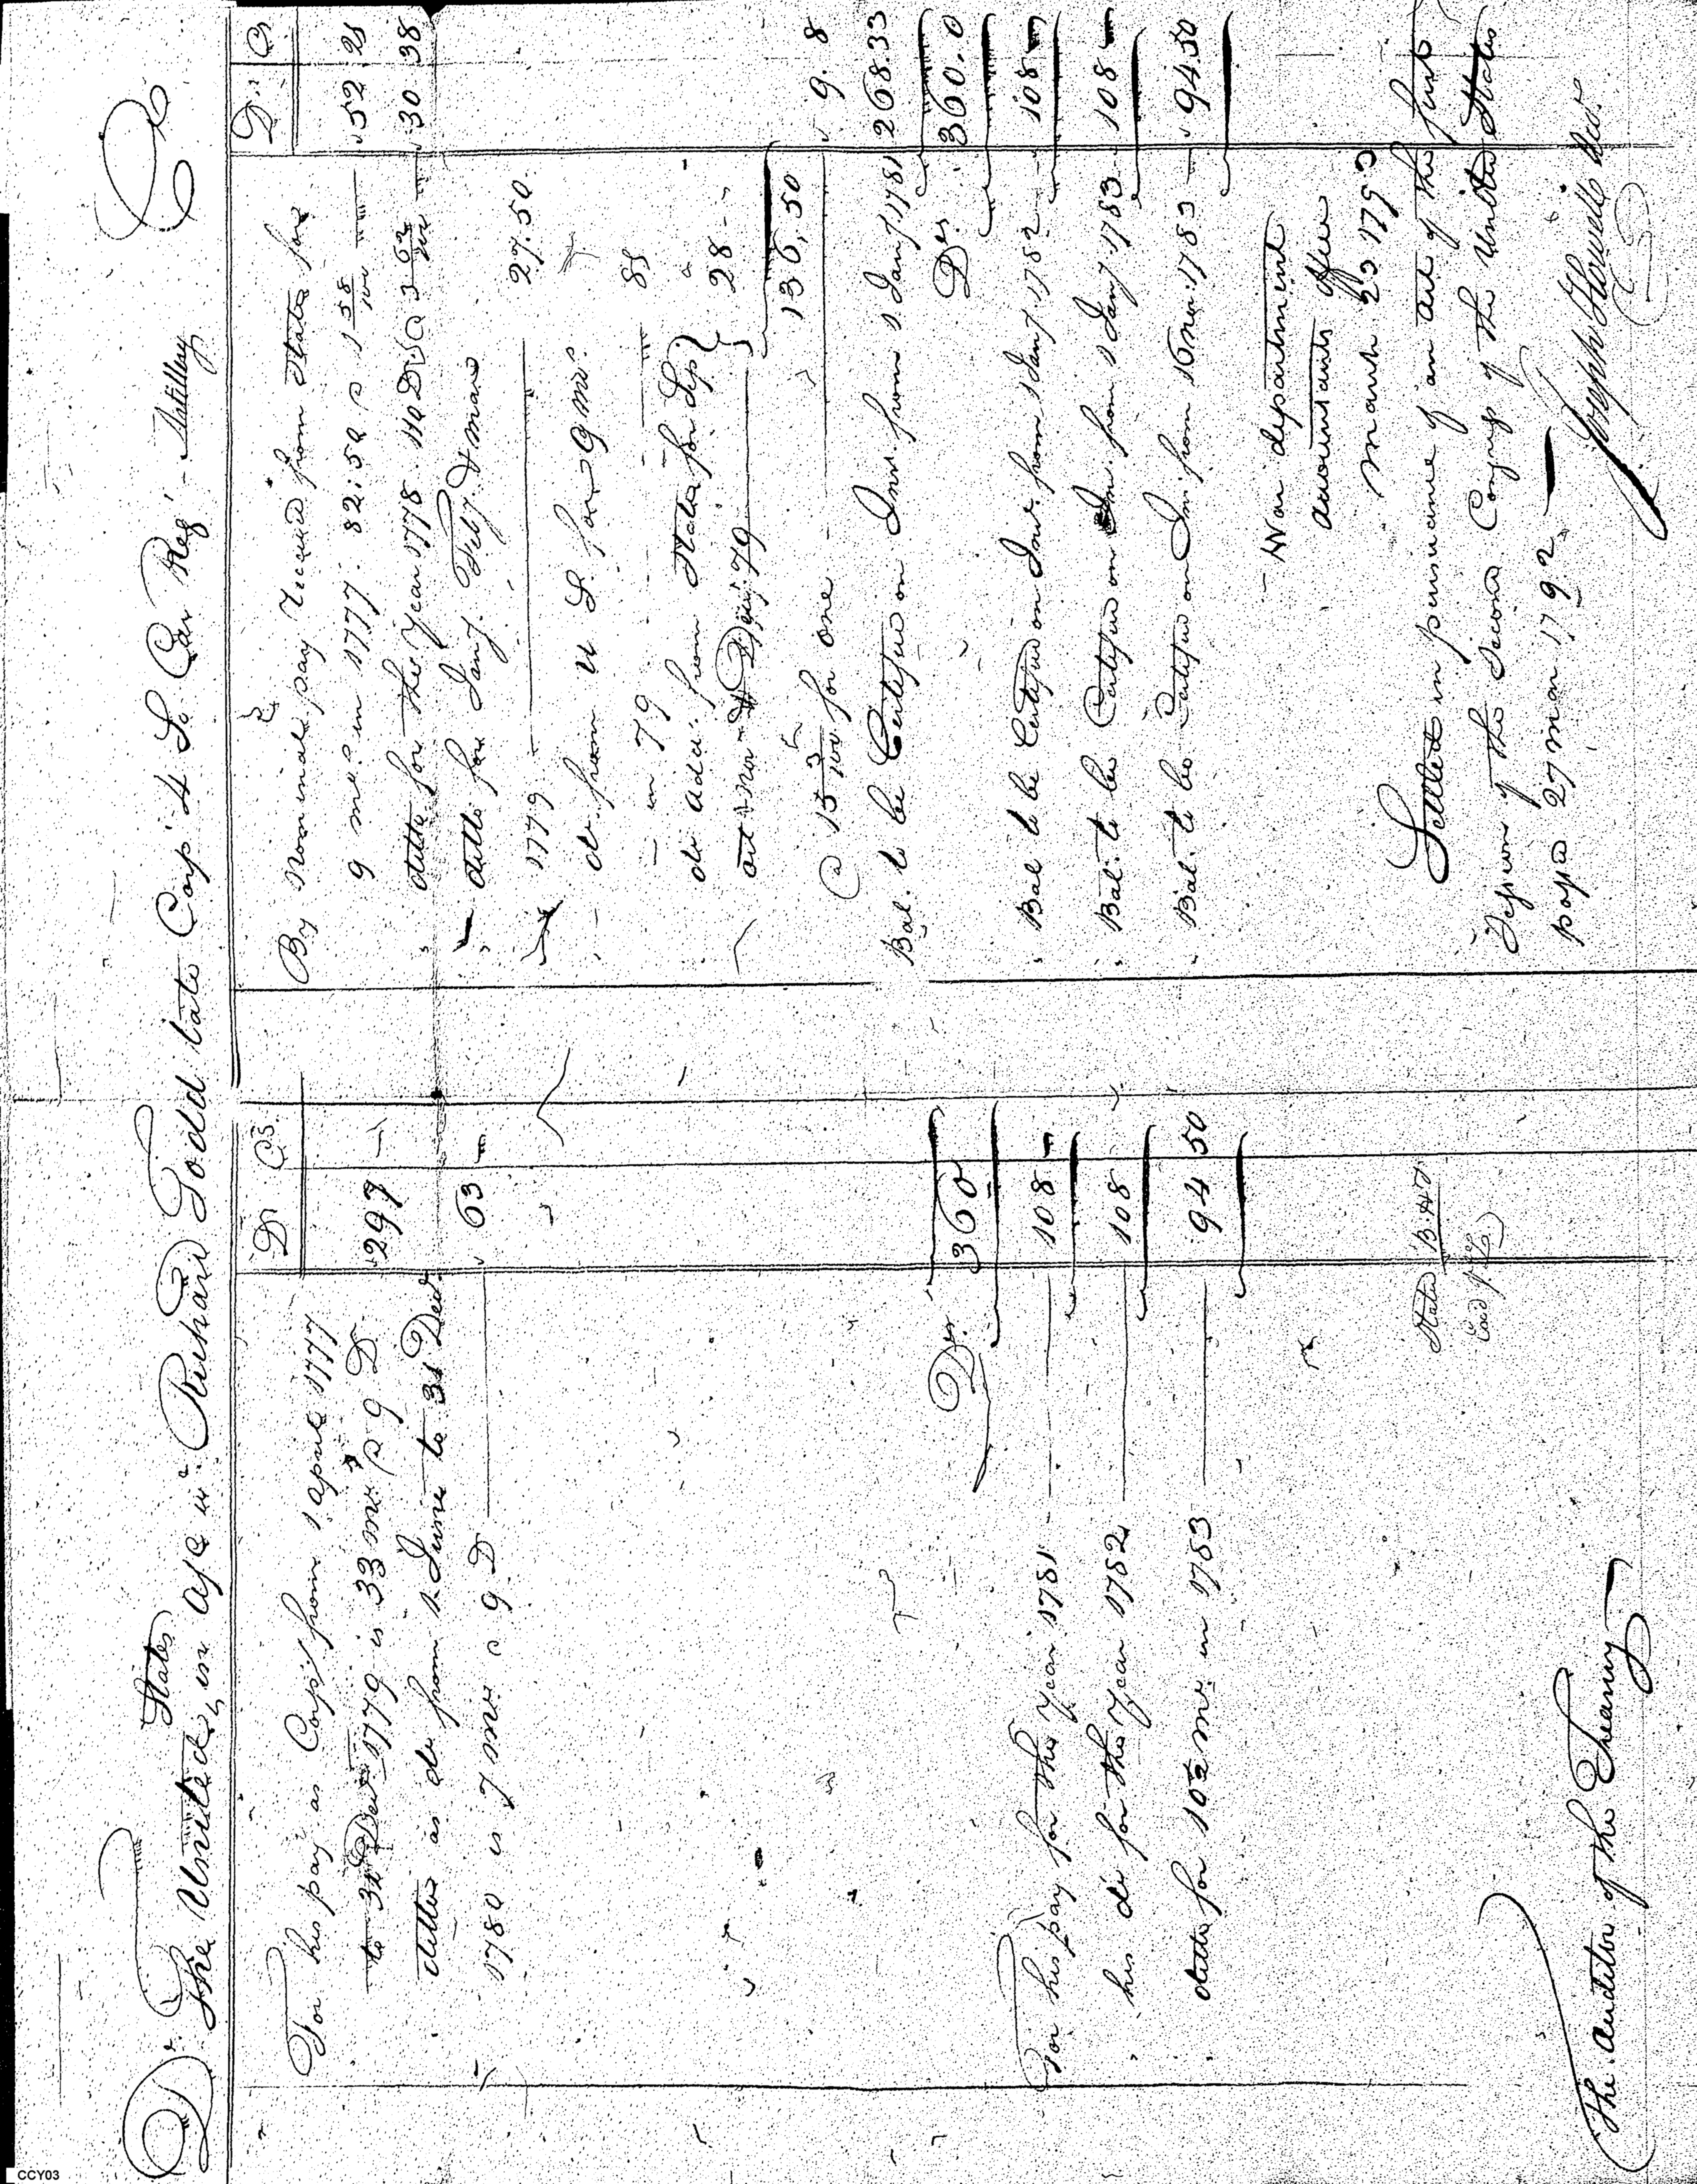 Dr. The United States, in a/c w. Richard Todd late Corpl 4 So Car Reg - Artillery Cr
D Cs
For his pay as Corpl from 1 April 1777
to 31 Decr 1779 is 33 mos @ 9 D 297 -
ditto as do from 1 June to 31 Decr
1780 is 7 mos @ 9 D 63 -
Drs. 360
For his pay for the year 1781 108 -
his do for the year 1782 108
ditto for 10½ mos in 1783 94 50
The Auditor of the Treasury
D C
By nominal pay received from State for
9 mos in 1777. 82:50 @ 1 58/100 52 21
ditto for the Year 1778 110 Ds @ 3 62/100 30 38
ditto for Jany. Feby. & March
1779 27.50
do from U S. for 9 mos
in 79 81
do addl. from State for Sep
oct Nov & Decr. 79 28 -
136,50
@ 15 3/100 for one 9.8
Bal. to be Certified on Int. from 1. Jany 1781 268.33
Drs. 360.0
Bal to be Certified on Int. from 1 Jany. 1782 108 -
Bal. to be Certified on Int. from 1 Jany. 1783 108 -
Bal. to be Certified on Int. from 16 Nov. 1783 94.50
War department
Accountants Office
March 23 1793
Settled in pursuance of an act of the first
Session of the second Congress of the United States
passed 27 Mar 1792
Joseph Howell
CCY03